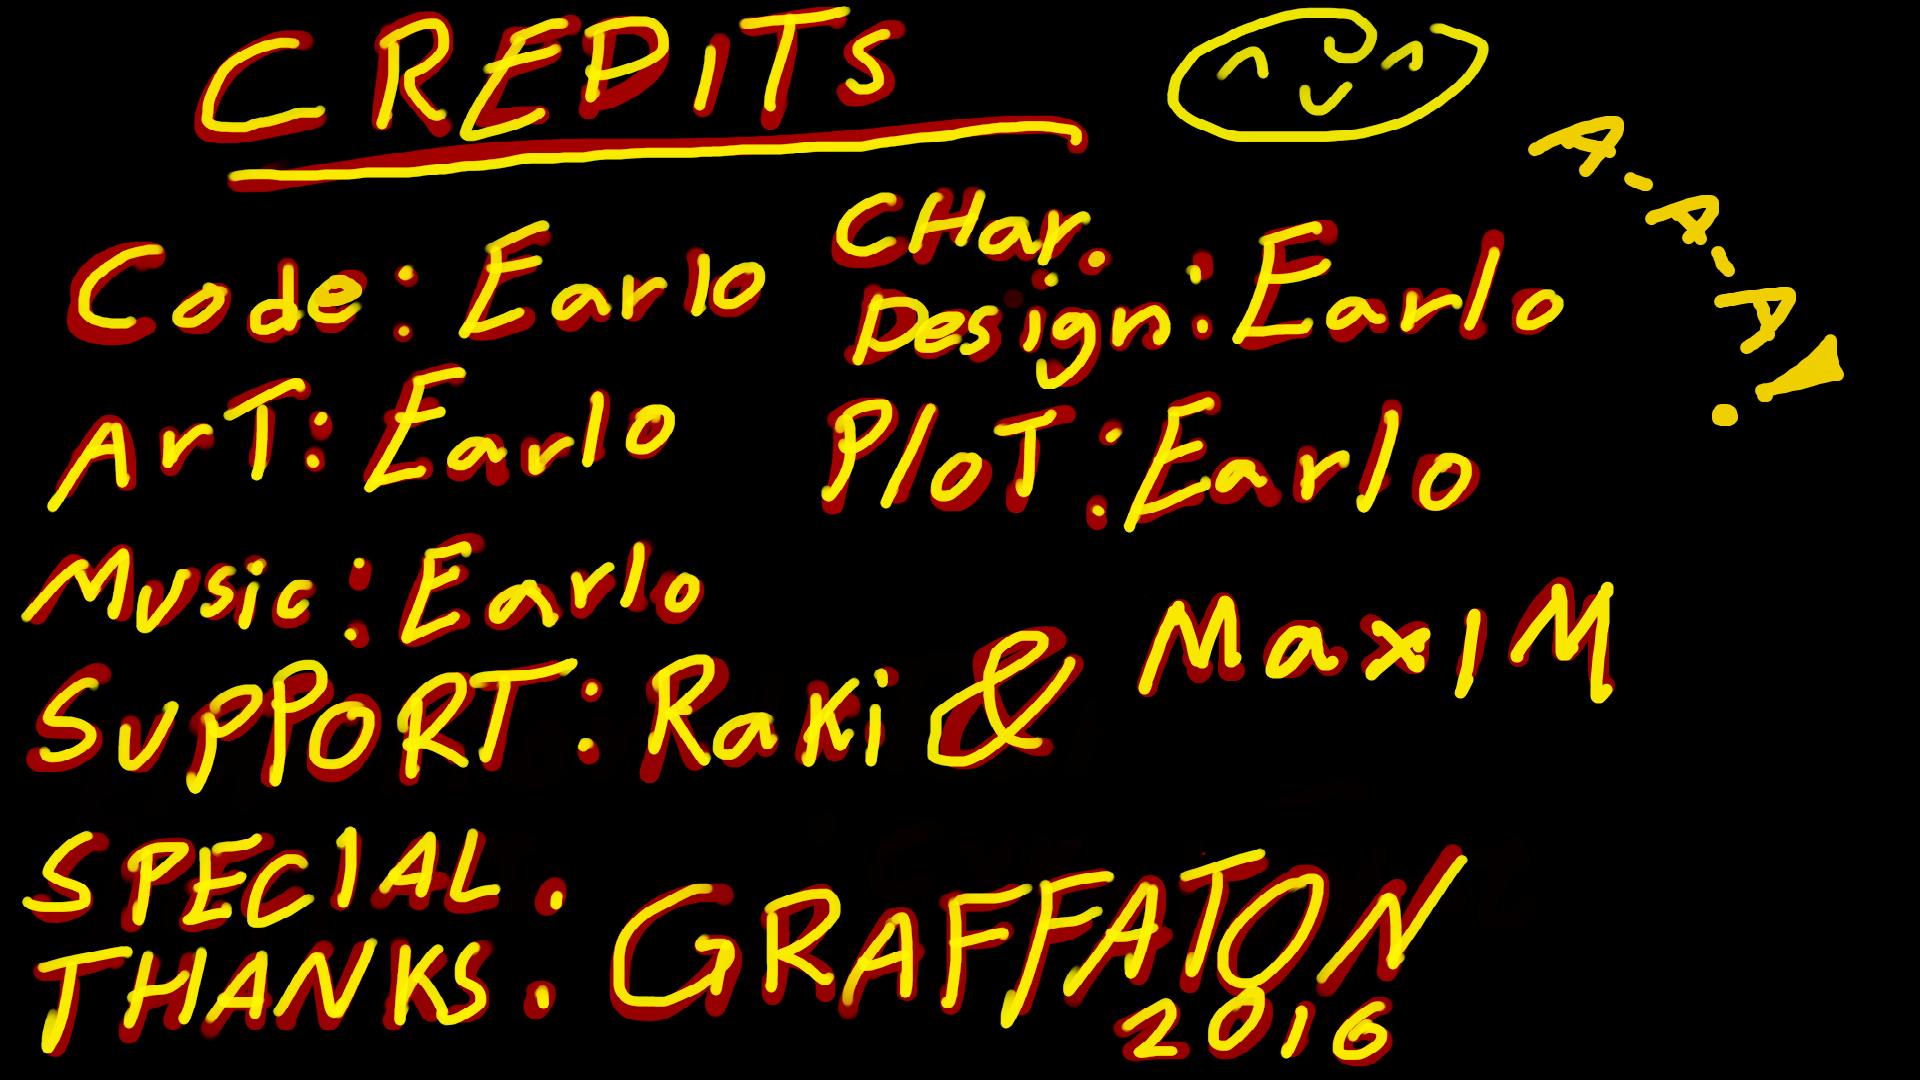 CREDITS
A-A-A!
Code: Earlo
CHar.
Design: Earlo
ArT: Earlo
PloT: Earlo
Music: Earlo
SuPPORT: Raki & MaxiM
SPECIAL
THANKS: GRAFFATON
2016